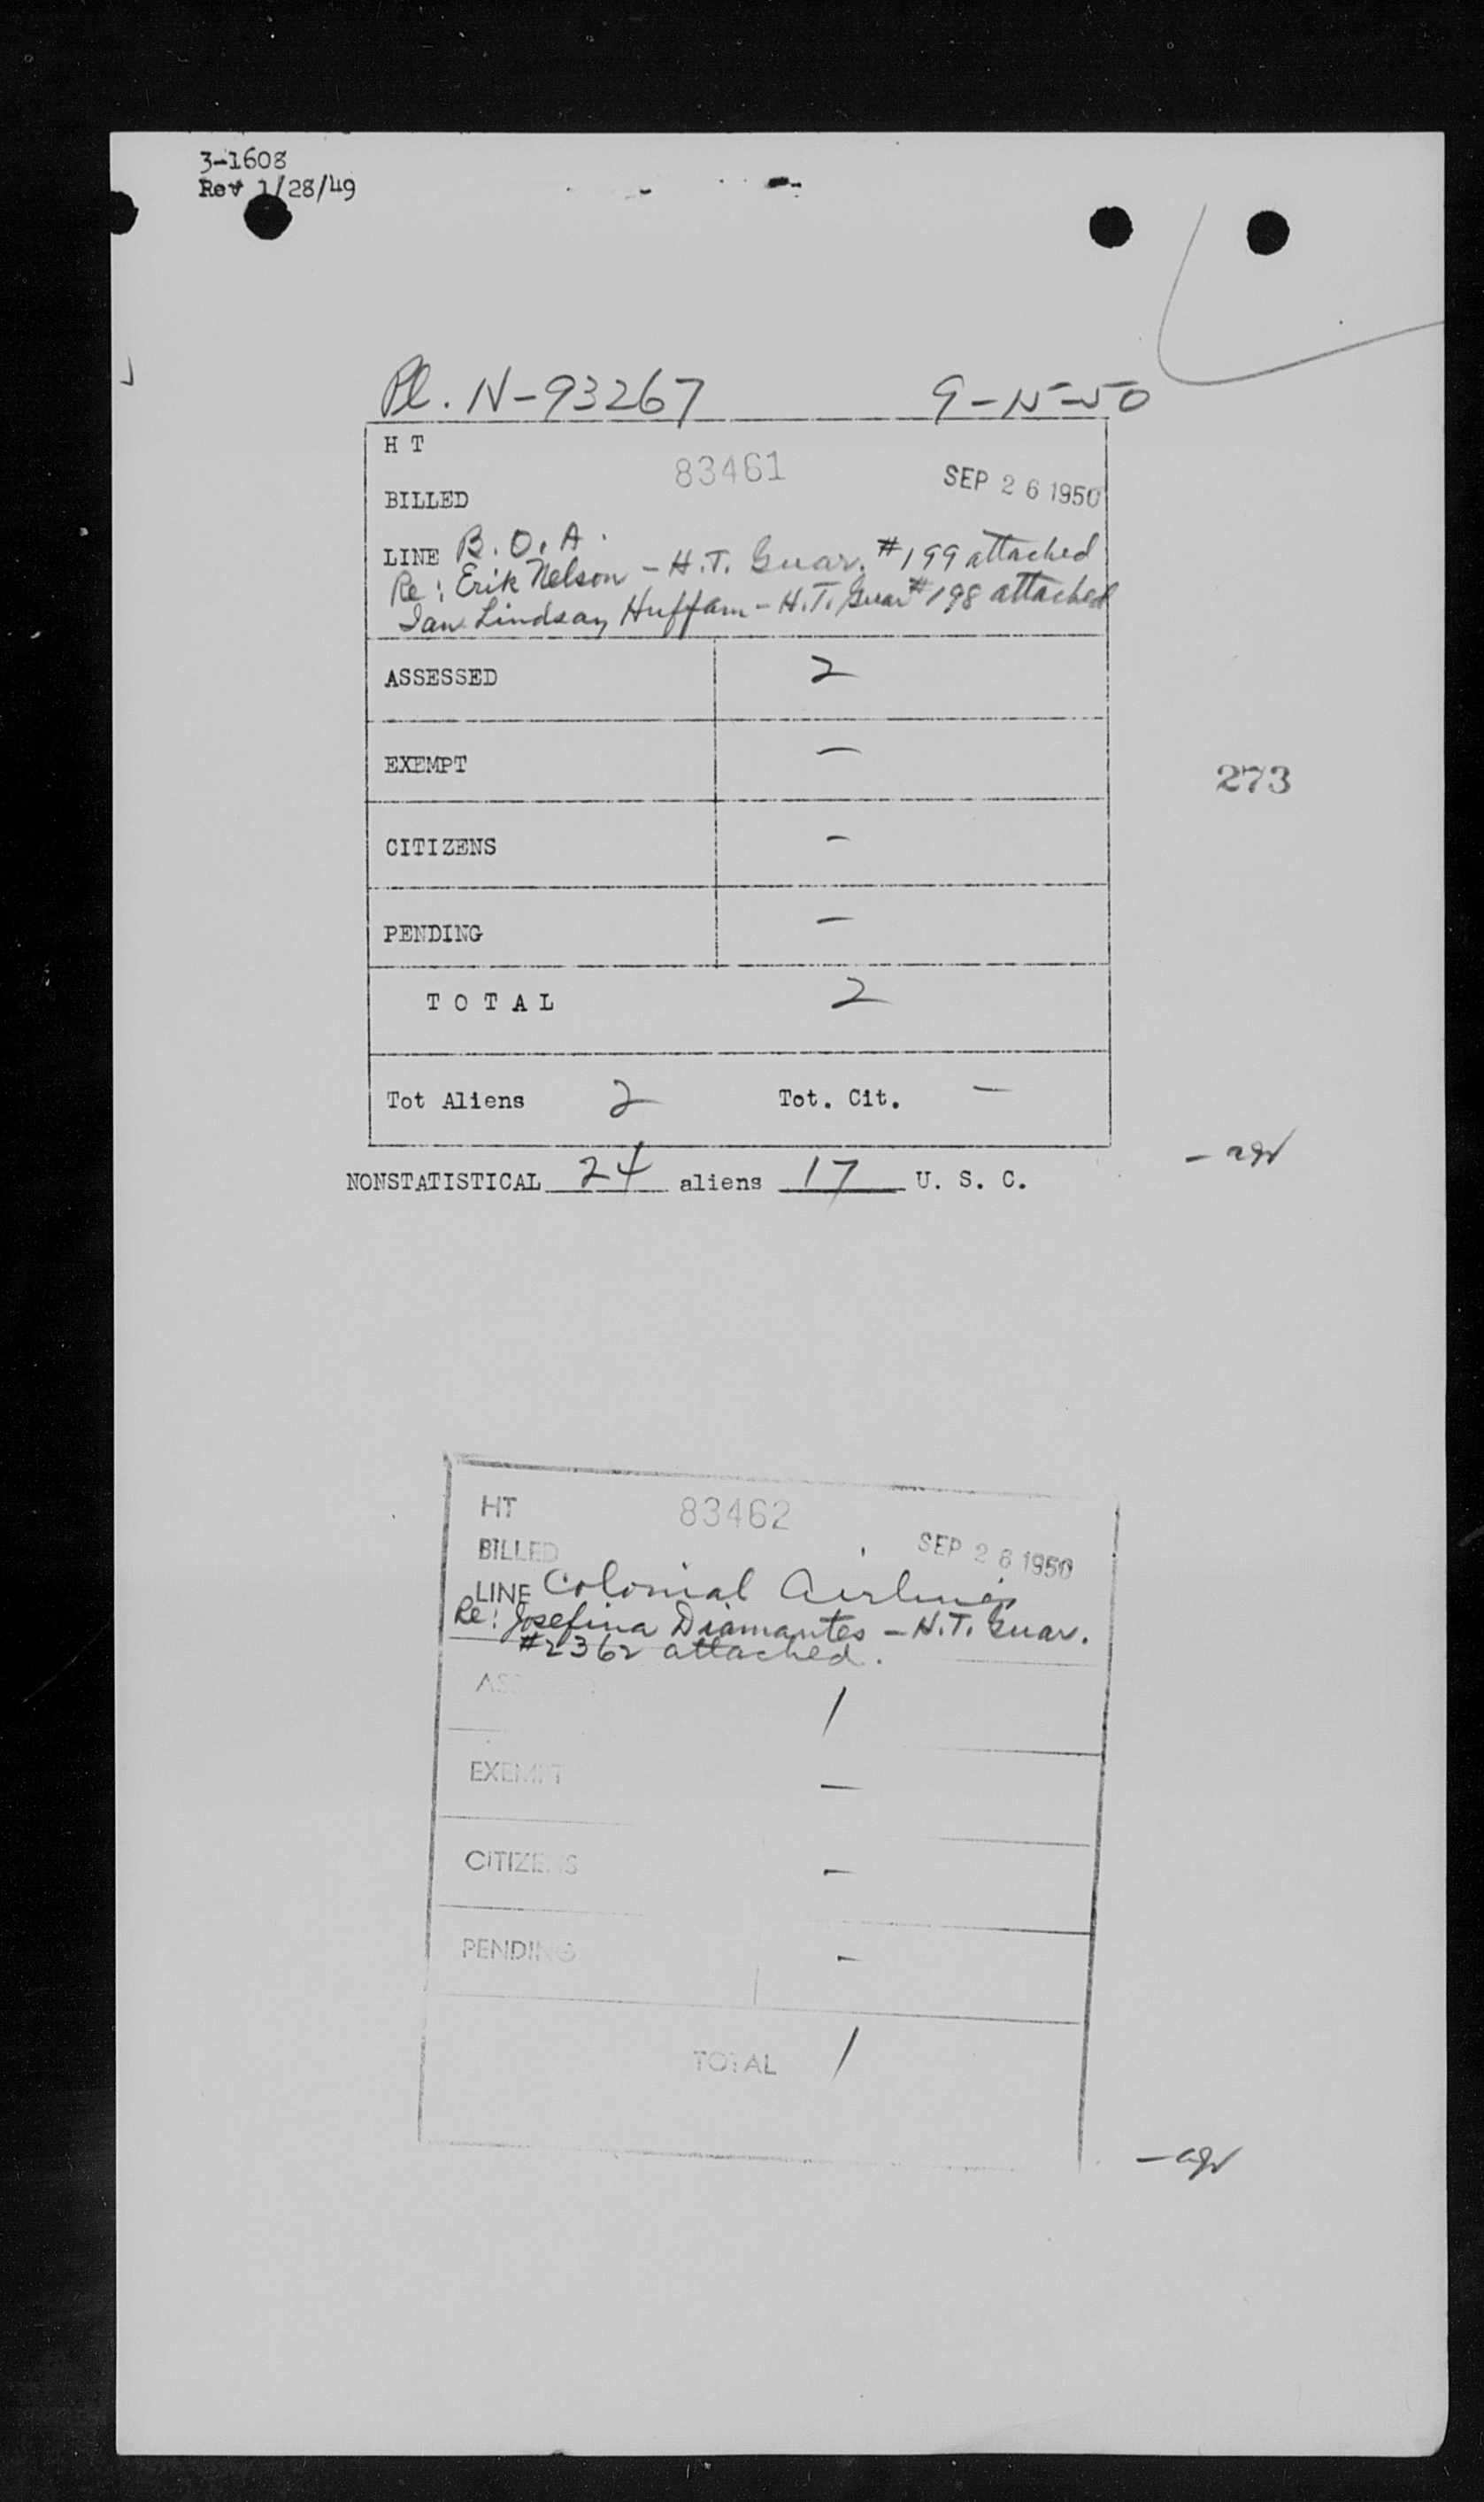 3-1608
Rev 1/28/49
Pl. N-93267 9-15-50
H T
83461
SEP 26 1950
BILLED
LINE B.O.A.
Re: Erik Nelson - H.T. Guar. #199 attached
Ian Lindsay Huffam - H.T. Guar #198 attached
ASSESSED 2
EXEMPT —
273
CITIZENS -
PENDING —
T O T A L 2
Tot Aliens 2 Tot. Cit. —
NONSTATISTICAL 24 aliens 17 U. S. C.
HT 83462
BILLED SEP 26 1950
LINE Colonial Airlines
Re: Josefina Diamantes - H.T. Guar.
#2362 attached.
ASSESSED 1
EXEMPT —
CITIZENS —
PENDING -
TOTAL 1